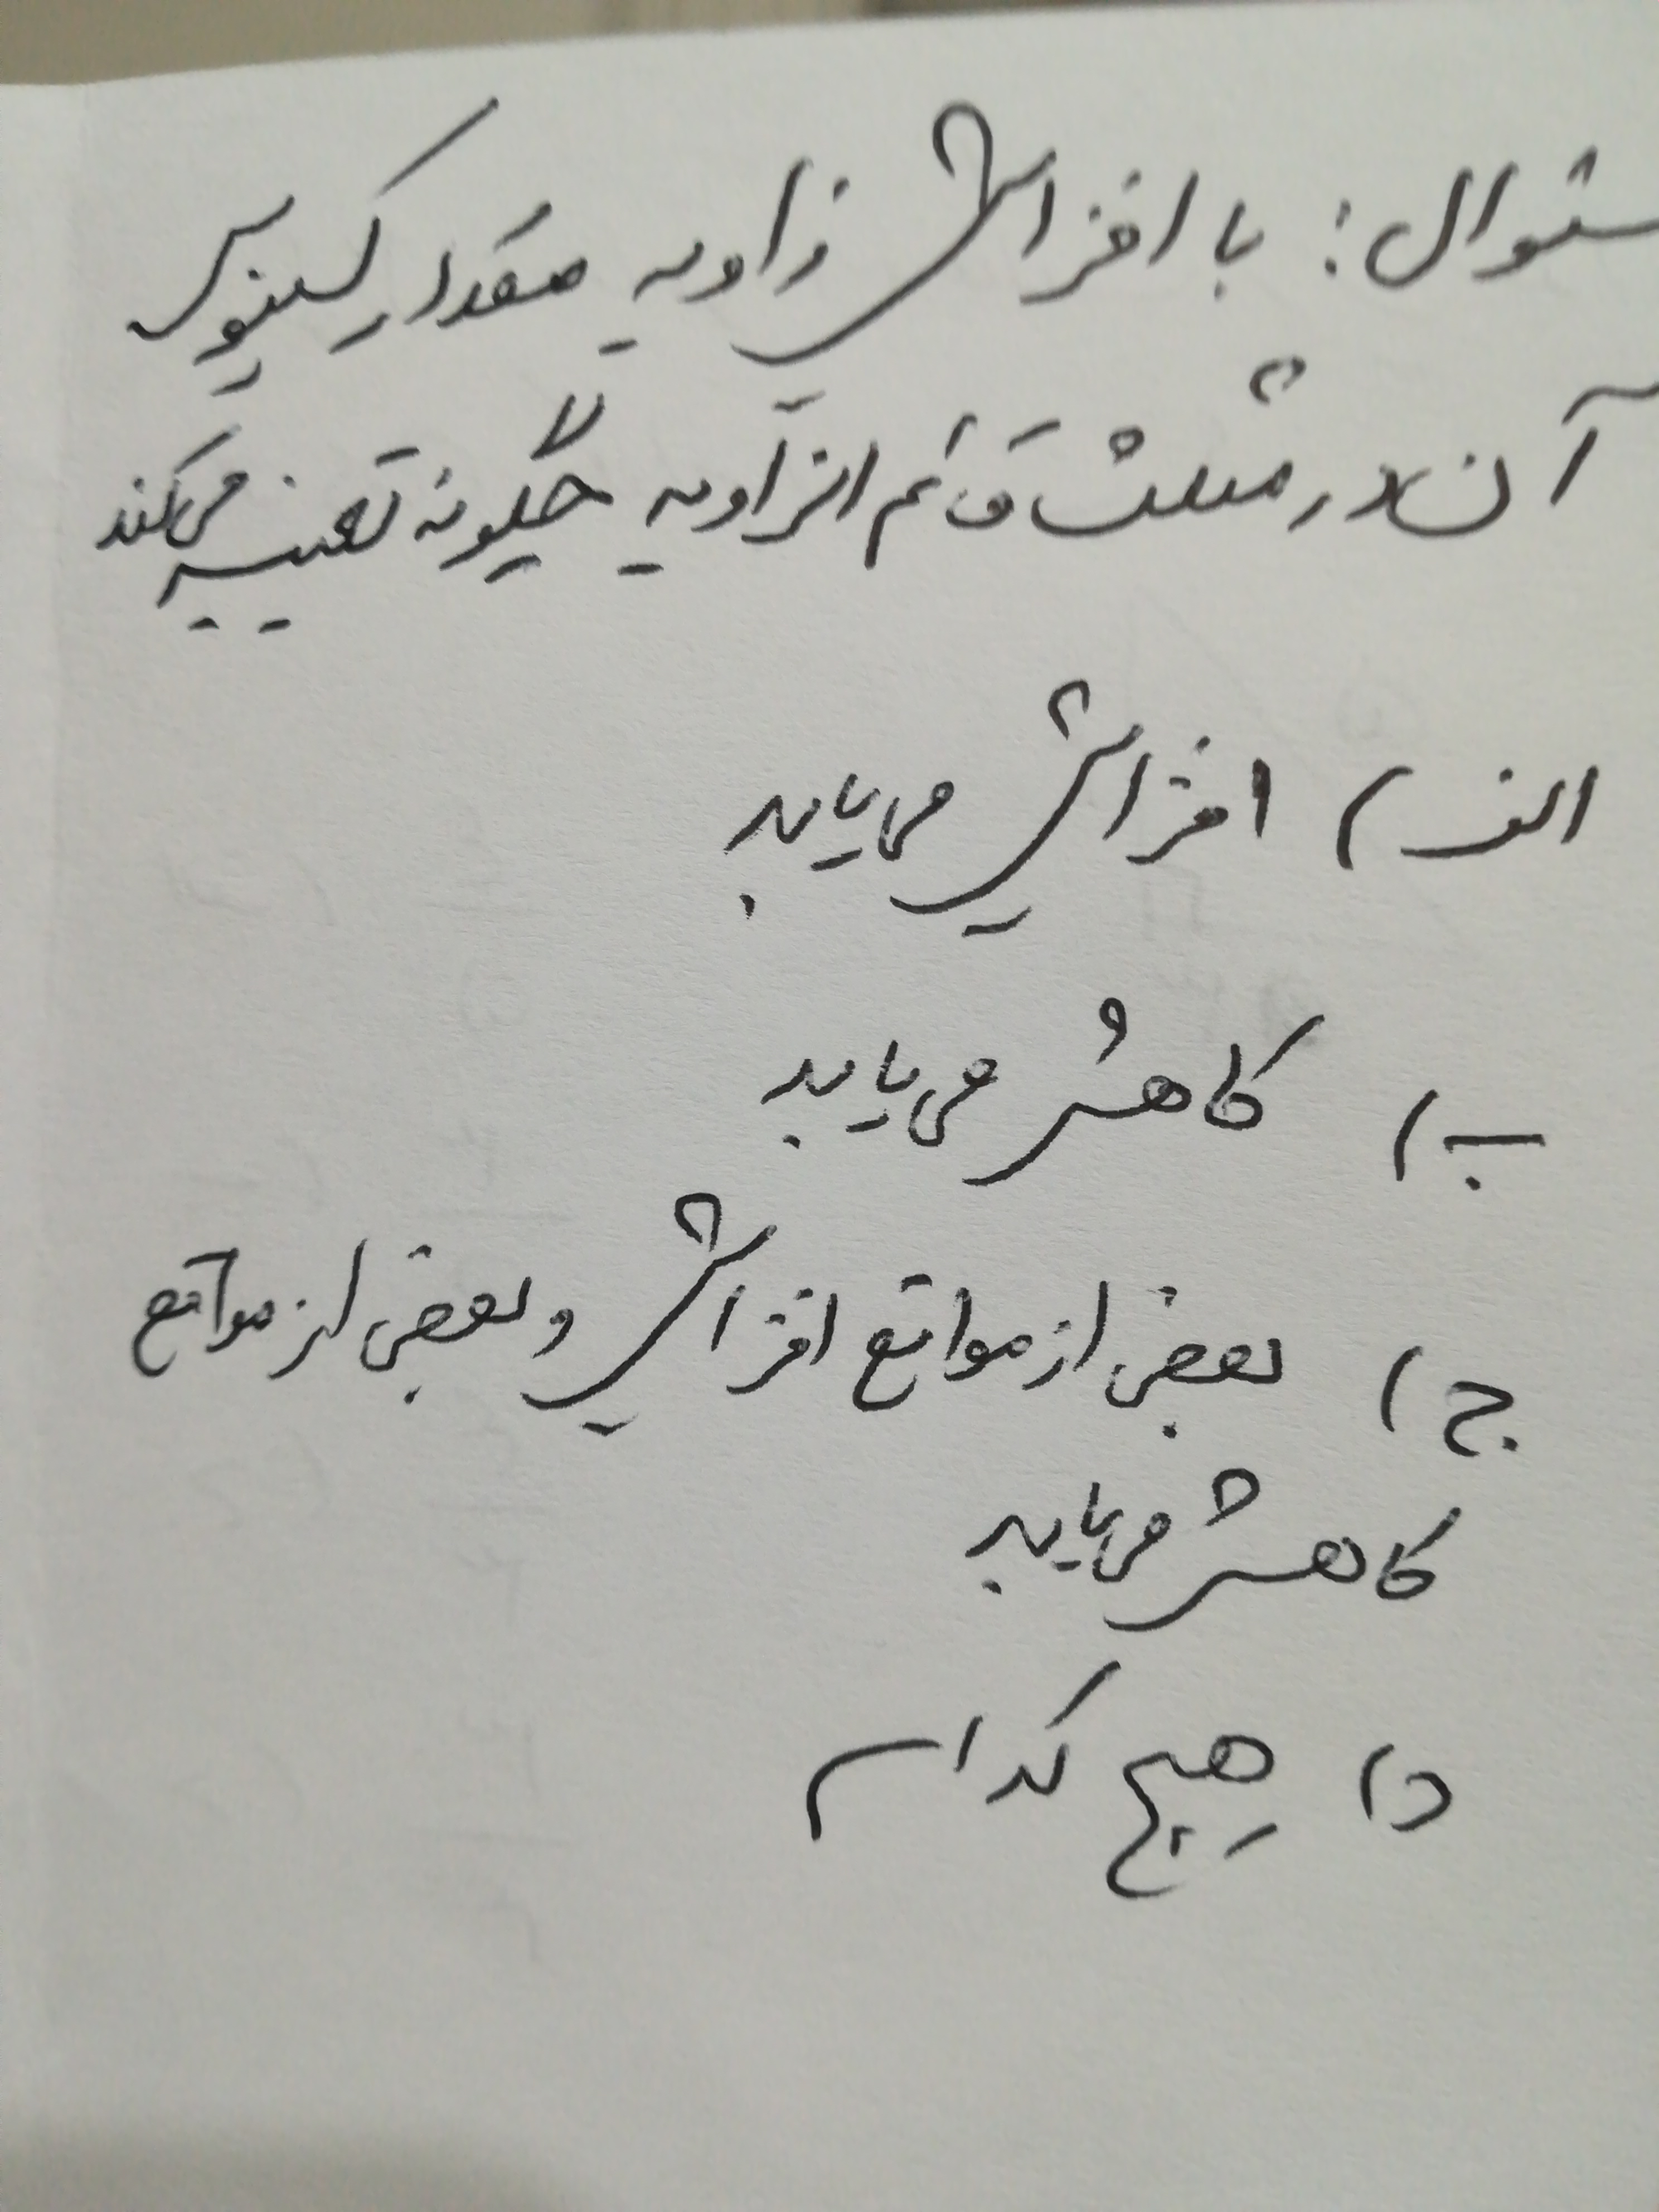 سئوال: با افزایش زاویه مقدار کسینوس
آن در مثلث قائم الزاویه چگونه تغییر می‌کند
الف) افزایش می‌یابد
ب) کاهش می‌یابد
ج) بعضی از مواقع افزایش و بعضی از مواقع
کاهش می‌یابد
د) هیچ کدام